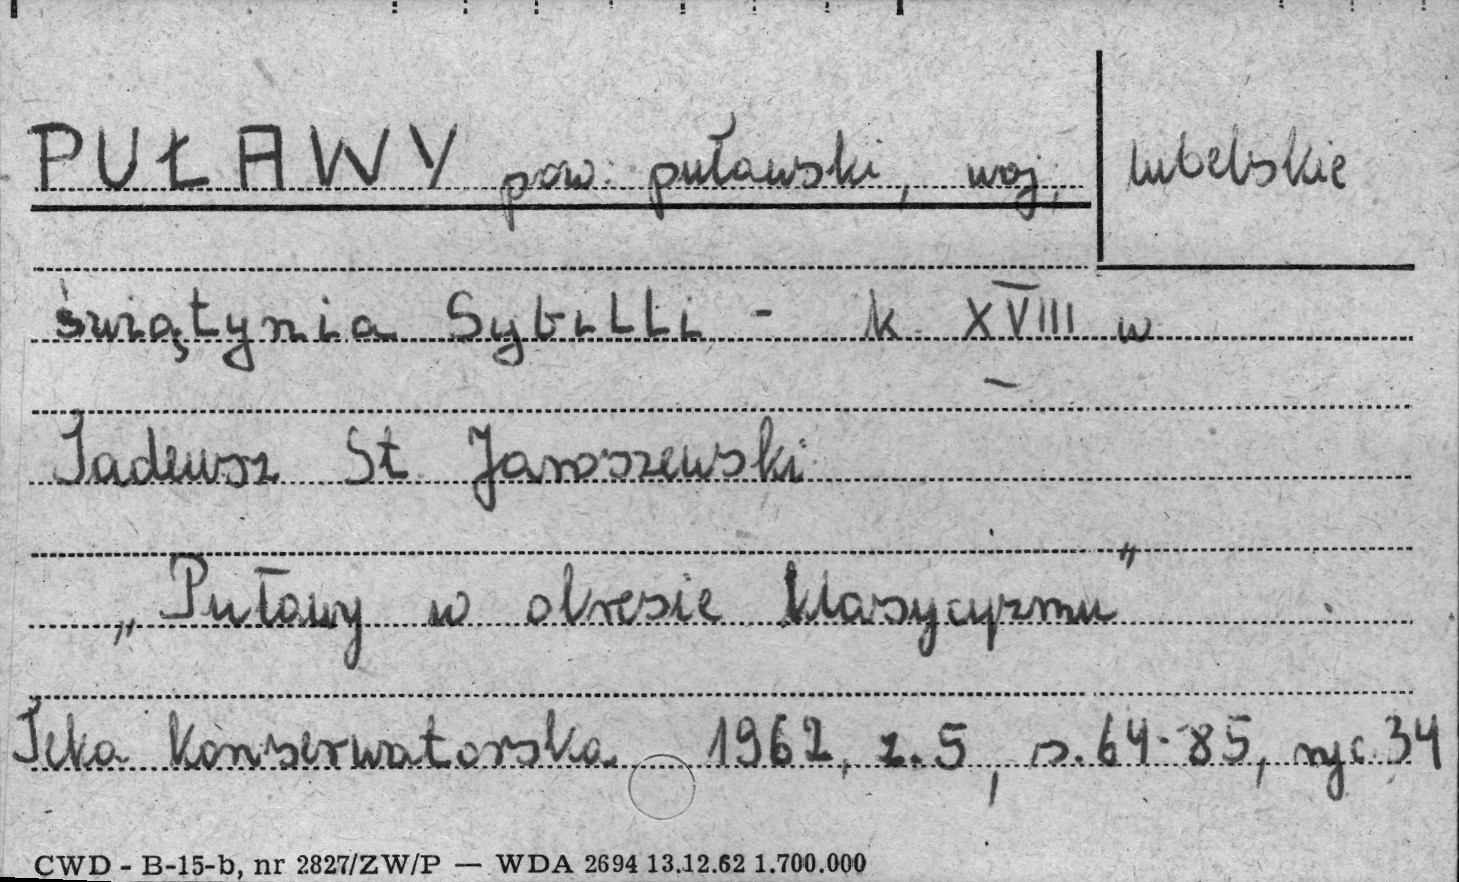 PUŁAWY pow. puławski, woj. lubelskie
świątynia Sybilli - k. XVIII w
Tadeusz St. Jaroszewski
„Puławy w okresie klasycyzmu"
Teka Konserwatorska 1962, z. 5, s. 64-85, ryc. 34
CWD - B-15-b, nr 2827/ZW/P — WDA 2694 13.12.62 1.700.000